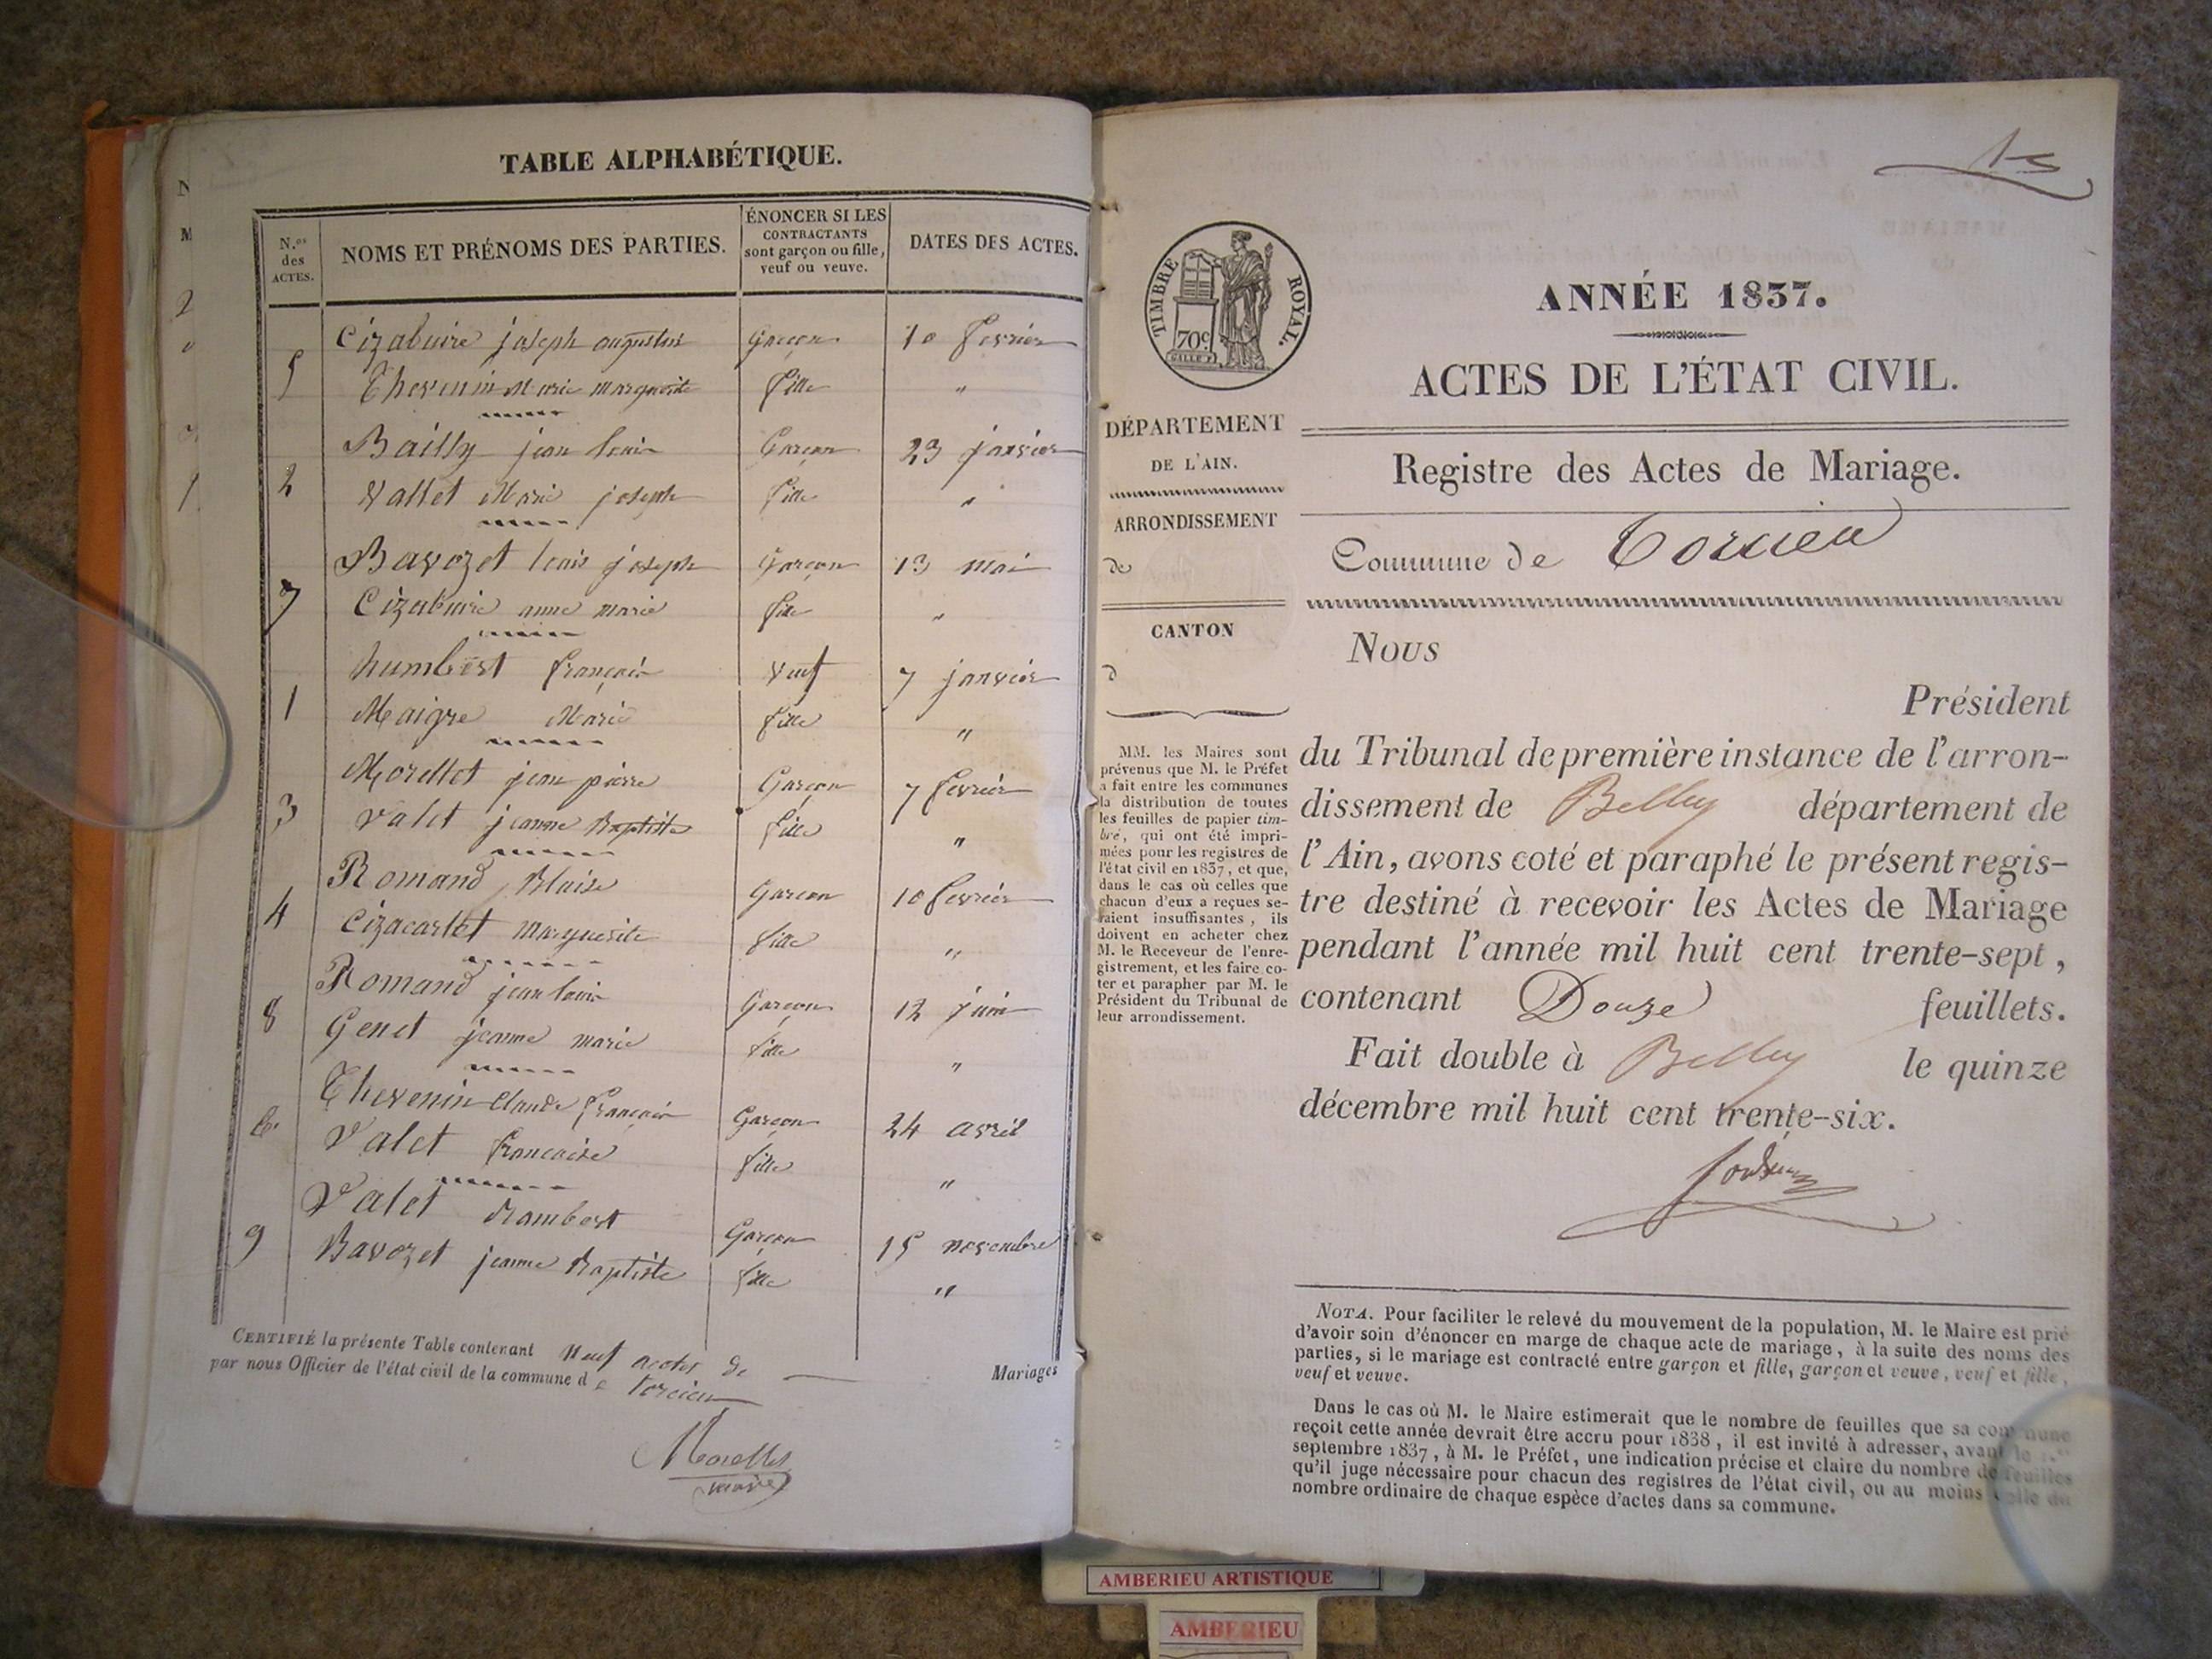 TABLE ALPHABÉTIQUE.
N.os des ACTES.
NOMS ET PRÉNOMS DES PARTIES.
ÉNONCER SI LES CONTRACTANTS sont garçon ou fille, veuf ou veuve.
DATES DES ACTES.
5 Cizabuire joseph augustin Garçon 10 fevrier
Thevenin Marie marguerite fille "
2 Bailly jean louis Garçon 23 janvier
Vallet Marie joseph fille "
7 Bavozet louis joseph Garçon 13 mai
Cizabuire anne marie fille "
1 humbert françois Veuf 7 janvier
Maigre Marie fille "
3 Morellet jean pierre Garçon 7 fevrier
Valet jeanne Baptiste fille "
4 Romand Blaise Garçon 10 fevrier
Cizacarlet Marguerite fille "
8 Romand jean louis Garçon 12 juin
Genet jeanne marie fille "
6 Thevenin Claude françois Garçon 24 avril
Valet francoise fille "
9 Valet Rambert Garçon 15 novembre
Bavozet jeanne Baptiste fille "
CERTIFIÉ la présente Table contenant Neuf actes de Mariages
par nous Officier de l'état civil de la commune de Torcieu
Morellet
maire
15
TIMBRE ROYAL.
70c
ANNÉE 1837.
ACTES DE L'ÉTAT CIVIL.
Registre des Actes de Mariage.
Commune de Torcieu
DÉPARTEMENT
DE L'AIN.
ARRONDISSEMENT
de
CANTON
d
MM. les Maires sont
prévenus que M. le Préfet
a fait entre les communes
la distribution de toutes
les feuilles de papier tim-
bré, qui ont été impri-
mées pour les registres de
l'état civil en 1837, et que,
dans le cas où celles que
chacun d'eux a reçues se-
raient insuffisantes, ils
doivent en acheter chez
M. le Receveur de l'enre-
gistrement, et les faire co-
ter et parapher par M. le
Président du Tribunal de
leur arrondissement.
Nous
Président
du Tribunal de première instance de l'arron-
dissement de Belley département de
l'Ain, avons coté et paraphé le présent regis-
tre destiné à recevoir les Actes de Mariage
pendant l'année mil huit cent trente-sept,
contenant Douze feuillets.
Fait double à Belley le quinze
décembre mil huit cent trente-six.
NOTA. Pour faciliter le relevé du mouvement de la population, M. le Maire est prié
d'avoir soin d'énoncer en marge de chaque acte de mariage, à la suite des noms des
parties, si le mariage est contracté entre garçon et fille, garçon et veuve, veuf et fille,
veuf et veuve.
Dans le cas où M. le Maire estimerait que le nombre de feuilles que sa commune
reçoit cette année devrait être accru pour 1838, il est invité à adresser, avant le 1.er
septembre 1837, à M. le Préfet, une indication précise et claire du nombre de feuilles
qu'il juge nécessaire pour chacun des registres de l'état civil, ou au moins celle du
nombre ordinaire de chaque espèce d'actes dans sa commune.
AMBERIEU ARTISTIQUE
AMBERIEU